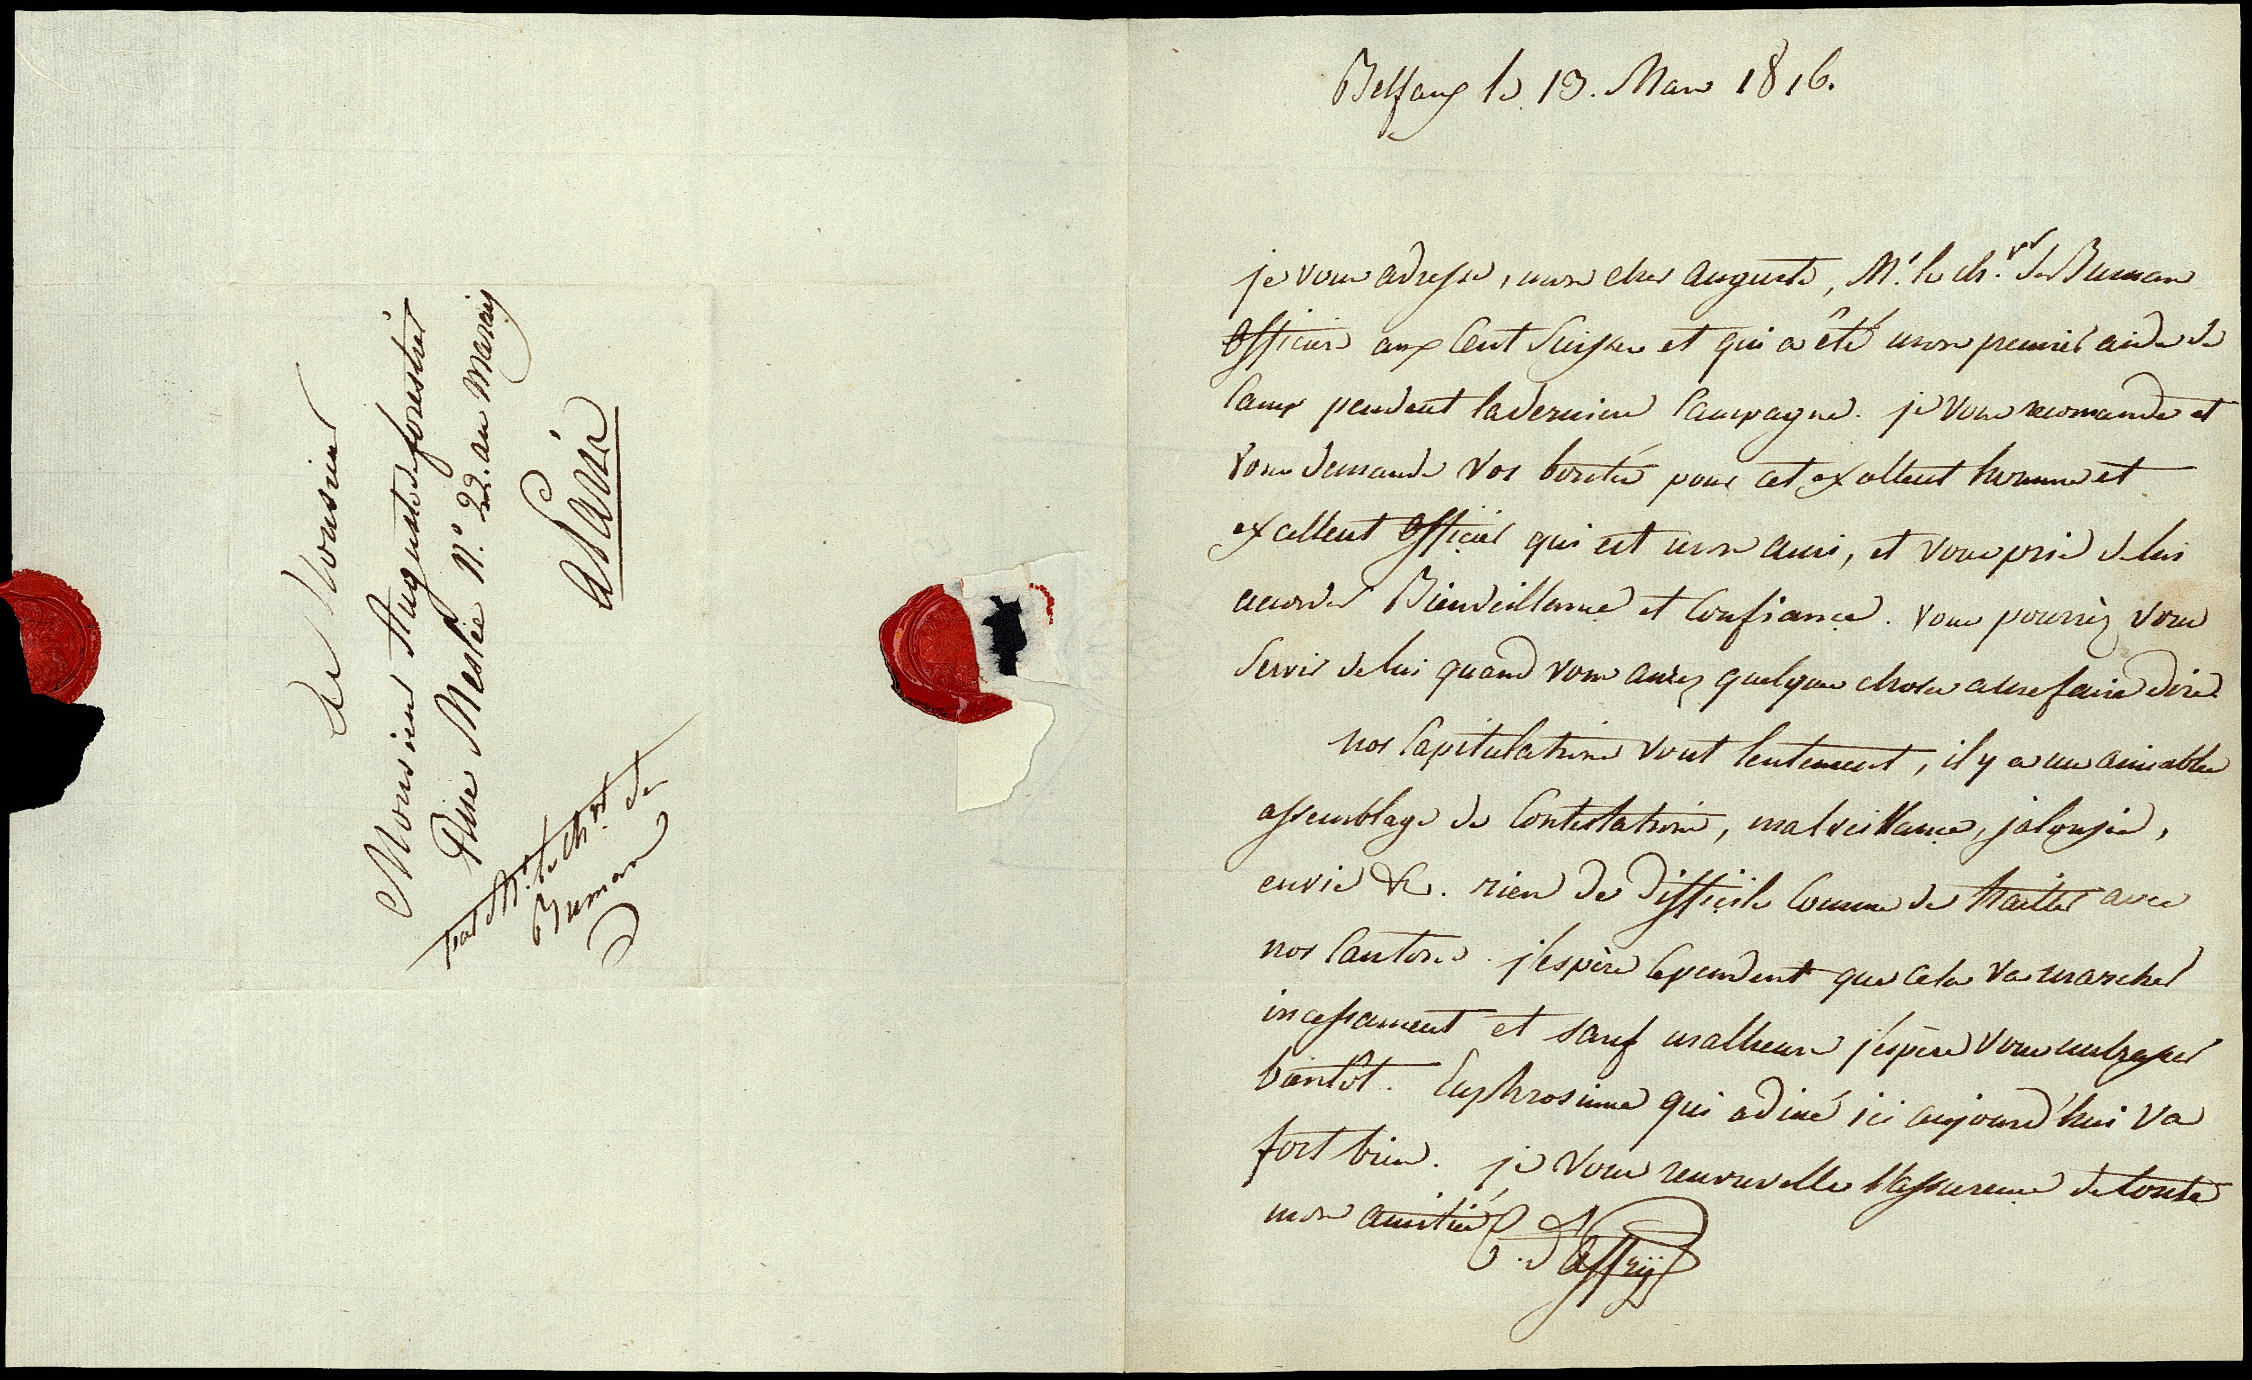 A Monsieur
Monsieur Auguste de forestier
Rue Meslée N.° 22. au Marais
A Paris
par Mr. le chier. de
Buman
Belfaux le 13. Mars 1816.
je vous adresse, mon cher Auguste, Mr. le ch.er de Buman
Officier aux Cent Suisses et qui a êté mon premier aide de
Camp pendent la derniere Campagne. je vous recomande et
vous demande vos bontés pour cet excellent homme et
excellent Officier qui est mon ami, et vous prie de lui
accorder Bienveillance et Confiance. vous pourriez vous
Servir de lui quand vous aurez quelque chose a me faire dire.
nos Capitulations vont lentement, il y a un aimable
assemblage de Contestations, malveillance, jalousie,
envie &c. rien de difficile Comme de traiter avec
nos Cantons. j'espère Cependent que cela va marcher
incessament et sauf malheurs j'espère vous embrasser
bientôt. Euphrosinne qui a diné ici aujourd'hui va
fort bien. je vous renouvelle l'assurence de toute
mon amitié
C. d'affry